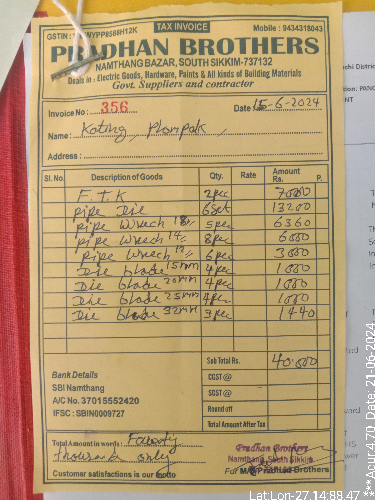 TAX INVOICE
GSTIN : 11MYPP8588H12K
Mobile : 9434318043
PRADHAN BROTHERS
NAMTHANG BAZAR, SOUTH SIKKIM-737132
Deals in : Electric Goods, Hardware, Paints & All kinds of Building Materials
Govt. Suppliers and contractor
Invoice No : 356 Date : 15-6-2024
Name :
Address :
Sl. No. Description of Goods Qty. Rate Amount Rs. P.
F.T.K 2pec 7000
pipe Die 6set 13200
pipe wrech 18" 5pec 6360
pipe wrech 14" 8pec 6000
pipe wrech 12" 6pec 3000
Die blade 15mm 4pec 1000
Die blade 20mm 4pec 1000
Die blade 25mm 4pec 1000
Die blade 32mm 3pec 1440
Sub Total Rs. 40.000
CGST @
SGST @
Round off
Total Amount After Tax
Bank Details
SBI Namthang
A/C No. 37015552420
IFSC : SBIN0009727
Total Amount in words :
thousand only
Customer satisfactions is our motto
Pradhan Brothers
Namthang, South Sikkim
For M/s Pradhan Brothers
Lat:Lon-27.14:88.47
**Acur:4.70 Date: 21-06-2024